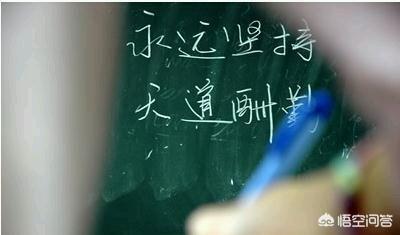 永远坚持
天道酬勤
悟空问答